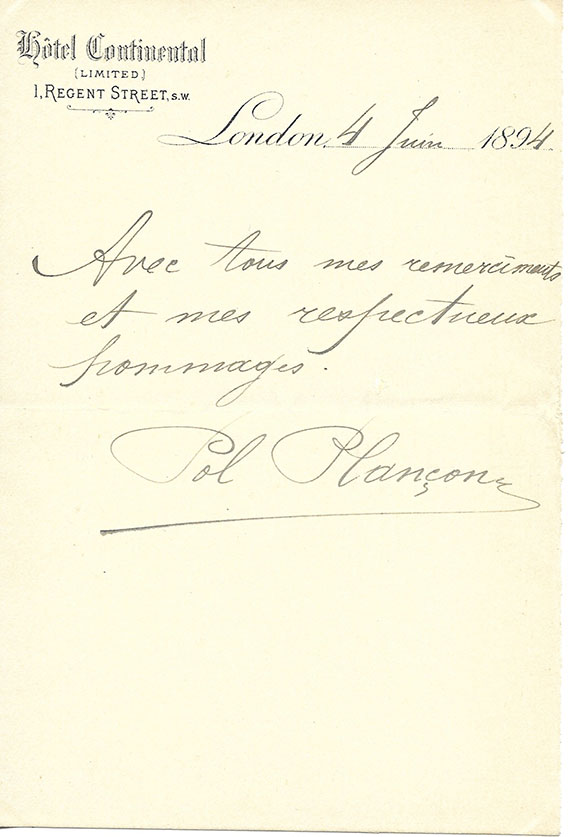 Hôtel Continental
(LIMITED)
1, REGENT STREET, S.W.
London, 4 Juin 1894
Avec tous mes remerciments
et mes respectueux
hommages.
Pol Plançon